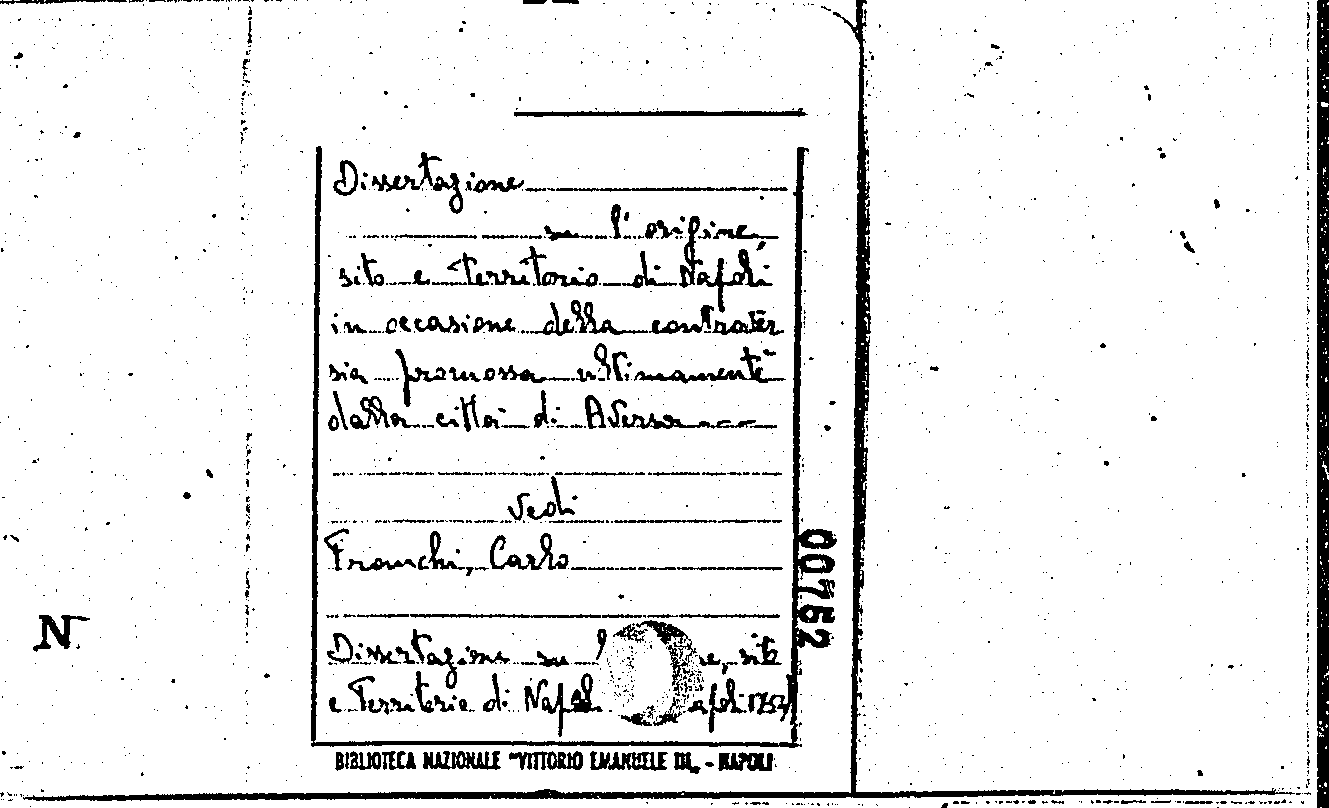 Dissertazione
su l'origine,
sito e Territorio di Napoli
in occasione della controver
sia promossa ultimamente
dalla città di Aversa
Vedi
Franchi, Carlo
00752
N
Dissertazione su l' ne, sito
e Territorio di Napoli
BIBLIOTECA NAZIONALE "VITTORIO EMANUELE III„ - NAPOLI